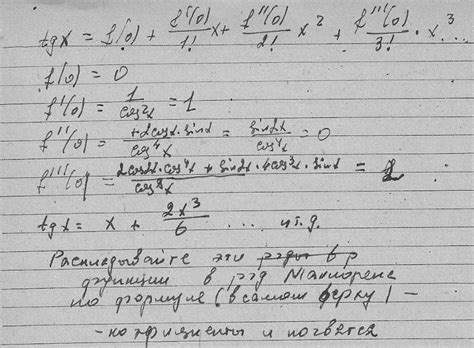 tgx = f(0) + f'(0)/1! x + f''(0)/2! x² + f'''(0)/3! · x³...
f(0) = 0
f'(0) = 1/cos²x = 1
f''(0) = +2cosx·sinx/cos⁴x = sin2x/cos⁴x = 0
f'''(0) = 2cos2x·cos⁴x + sin2x·4cos³x·sinx/cos⁸x = 2
tgx = x + 2x³/6 .... и т.д.
Раскладывайте эти в р
функции в ряд Маклорена
по формуле (в самом верху) –
- коэфициенты и появятся